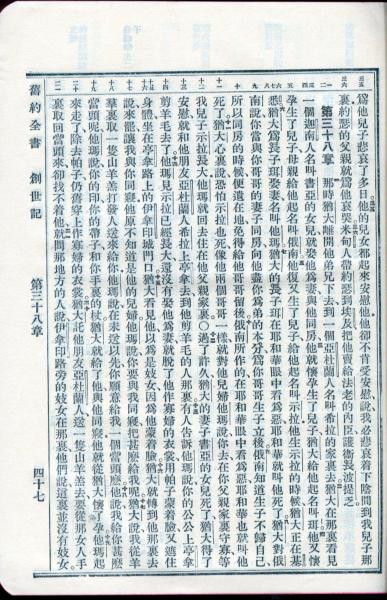 爲他兒子悲哀了多日他的兒女都起來安慰他他卻不肯受安慰說我必悲哀着下陰間到我兒子那
裏約瑟的父親就爲他哀哭米甸人帶約瑟到埃及把他賣給法老的內臣護衛長波提乏
第三十八章 那時猶大離開他弟兄下去到一個亞杜蘭人名叫希拉的家裏去猶大在那裏看見
一個迦南人名叫書亞的女兒就娶他爲妻與他同房他就懷孕生了兒子猶大給他起名叫珥他又懷
孕生了兒子母親給他起名叫俄南他復又生了兒子給他起名叫示拉他生示拉的時候猶大正在基
悉猶大爲長子珥娶妻名叫他瑪猶大的長子珥在耶和華眼中看爲惡耶和華就叫他死了猶大對俄
南說你當與你哥哥的妻子同房向他盡你爲弟的本分爲你哥哥生子立後俄南知道生子不歸自己
所以同房的時候便遺在地免得給他哥哥留後俄南所作的在耶和華眼中看爲惡耶和華也就叫他
死了猶大心裏說恐怕示拉也死像他兩個哥哥一樣就對他兒婦他瑪說你去在你父親家裏守寡等
我兒子示拉長大他瑪就回去住在他父親家裏○過了許久猶大的妻子書亞的女兒死了猶大得了
安慰就和他朋友亞杜蘭人希拉上亭拿去到他剪羊毛的人那裏有人告訴他瑪說你的公公上亭拿
剪羊毛去了他瑪見示拉已經長大還沒有娶他爲妻就脫了他作寡婦的衣裳用帕子蒙着臉又遮住
身體坐在亭拿路上的伊拿印城門口猶大看見他以爲是妓女因爲他蒙着臉猶大就轉到他那裏去
說來罷讓我與你同寢他原不知道是他的兒婦他瑪說你要與我同寢把甚麽給我呢猶大說我從羊
羣裏取一隻山羊羔打發人送來給你他瑪說在未送以先你願意給我一個當頭麽他說我給你甚麽
當頭呢他瑪說你的印你的帶子和你手裏的杖猶大就給了他與他同寢他就從猶大懷了孕他瑪起
來走了除去帕子仍舊穿上作寡婦的衣裳猶大託他朋友亞杜蘭人送一隻山羊羔去要從那女人手
裏取回當頭來卻找不着他就問那地方的人說伊拿印路旁的妓女在那裏他們說這裏並沒有妓女
舊約全書 創世記 第三十八章 四十七